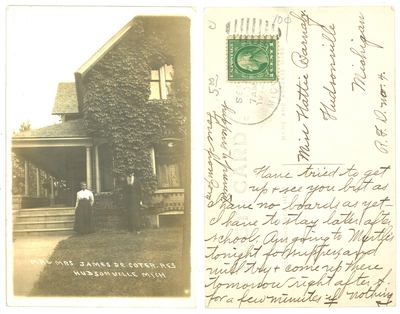 MR & MRS JAMES DE COTER. RES
HUDSONVILLE MICH
10¢
5.00
Miss Hattie Barnaby
Hudsonville
Michigan
R.F.D. no. 4.
Have tried to get
up & see you but as
have no boards as yet
I have to stay later after
school. Am going to Myrtle's
tonight for supper and
will try & come up there
tomorrow right after s.
for a few minutes if nothing